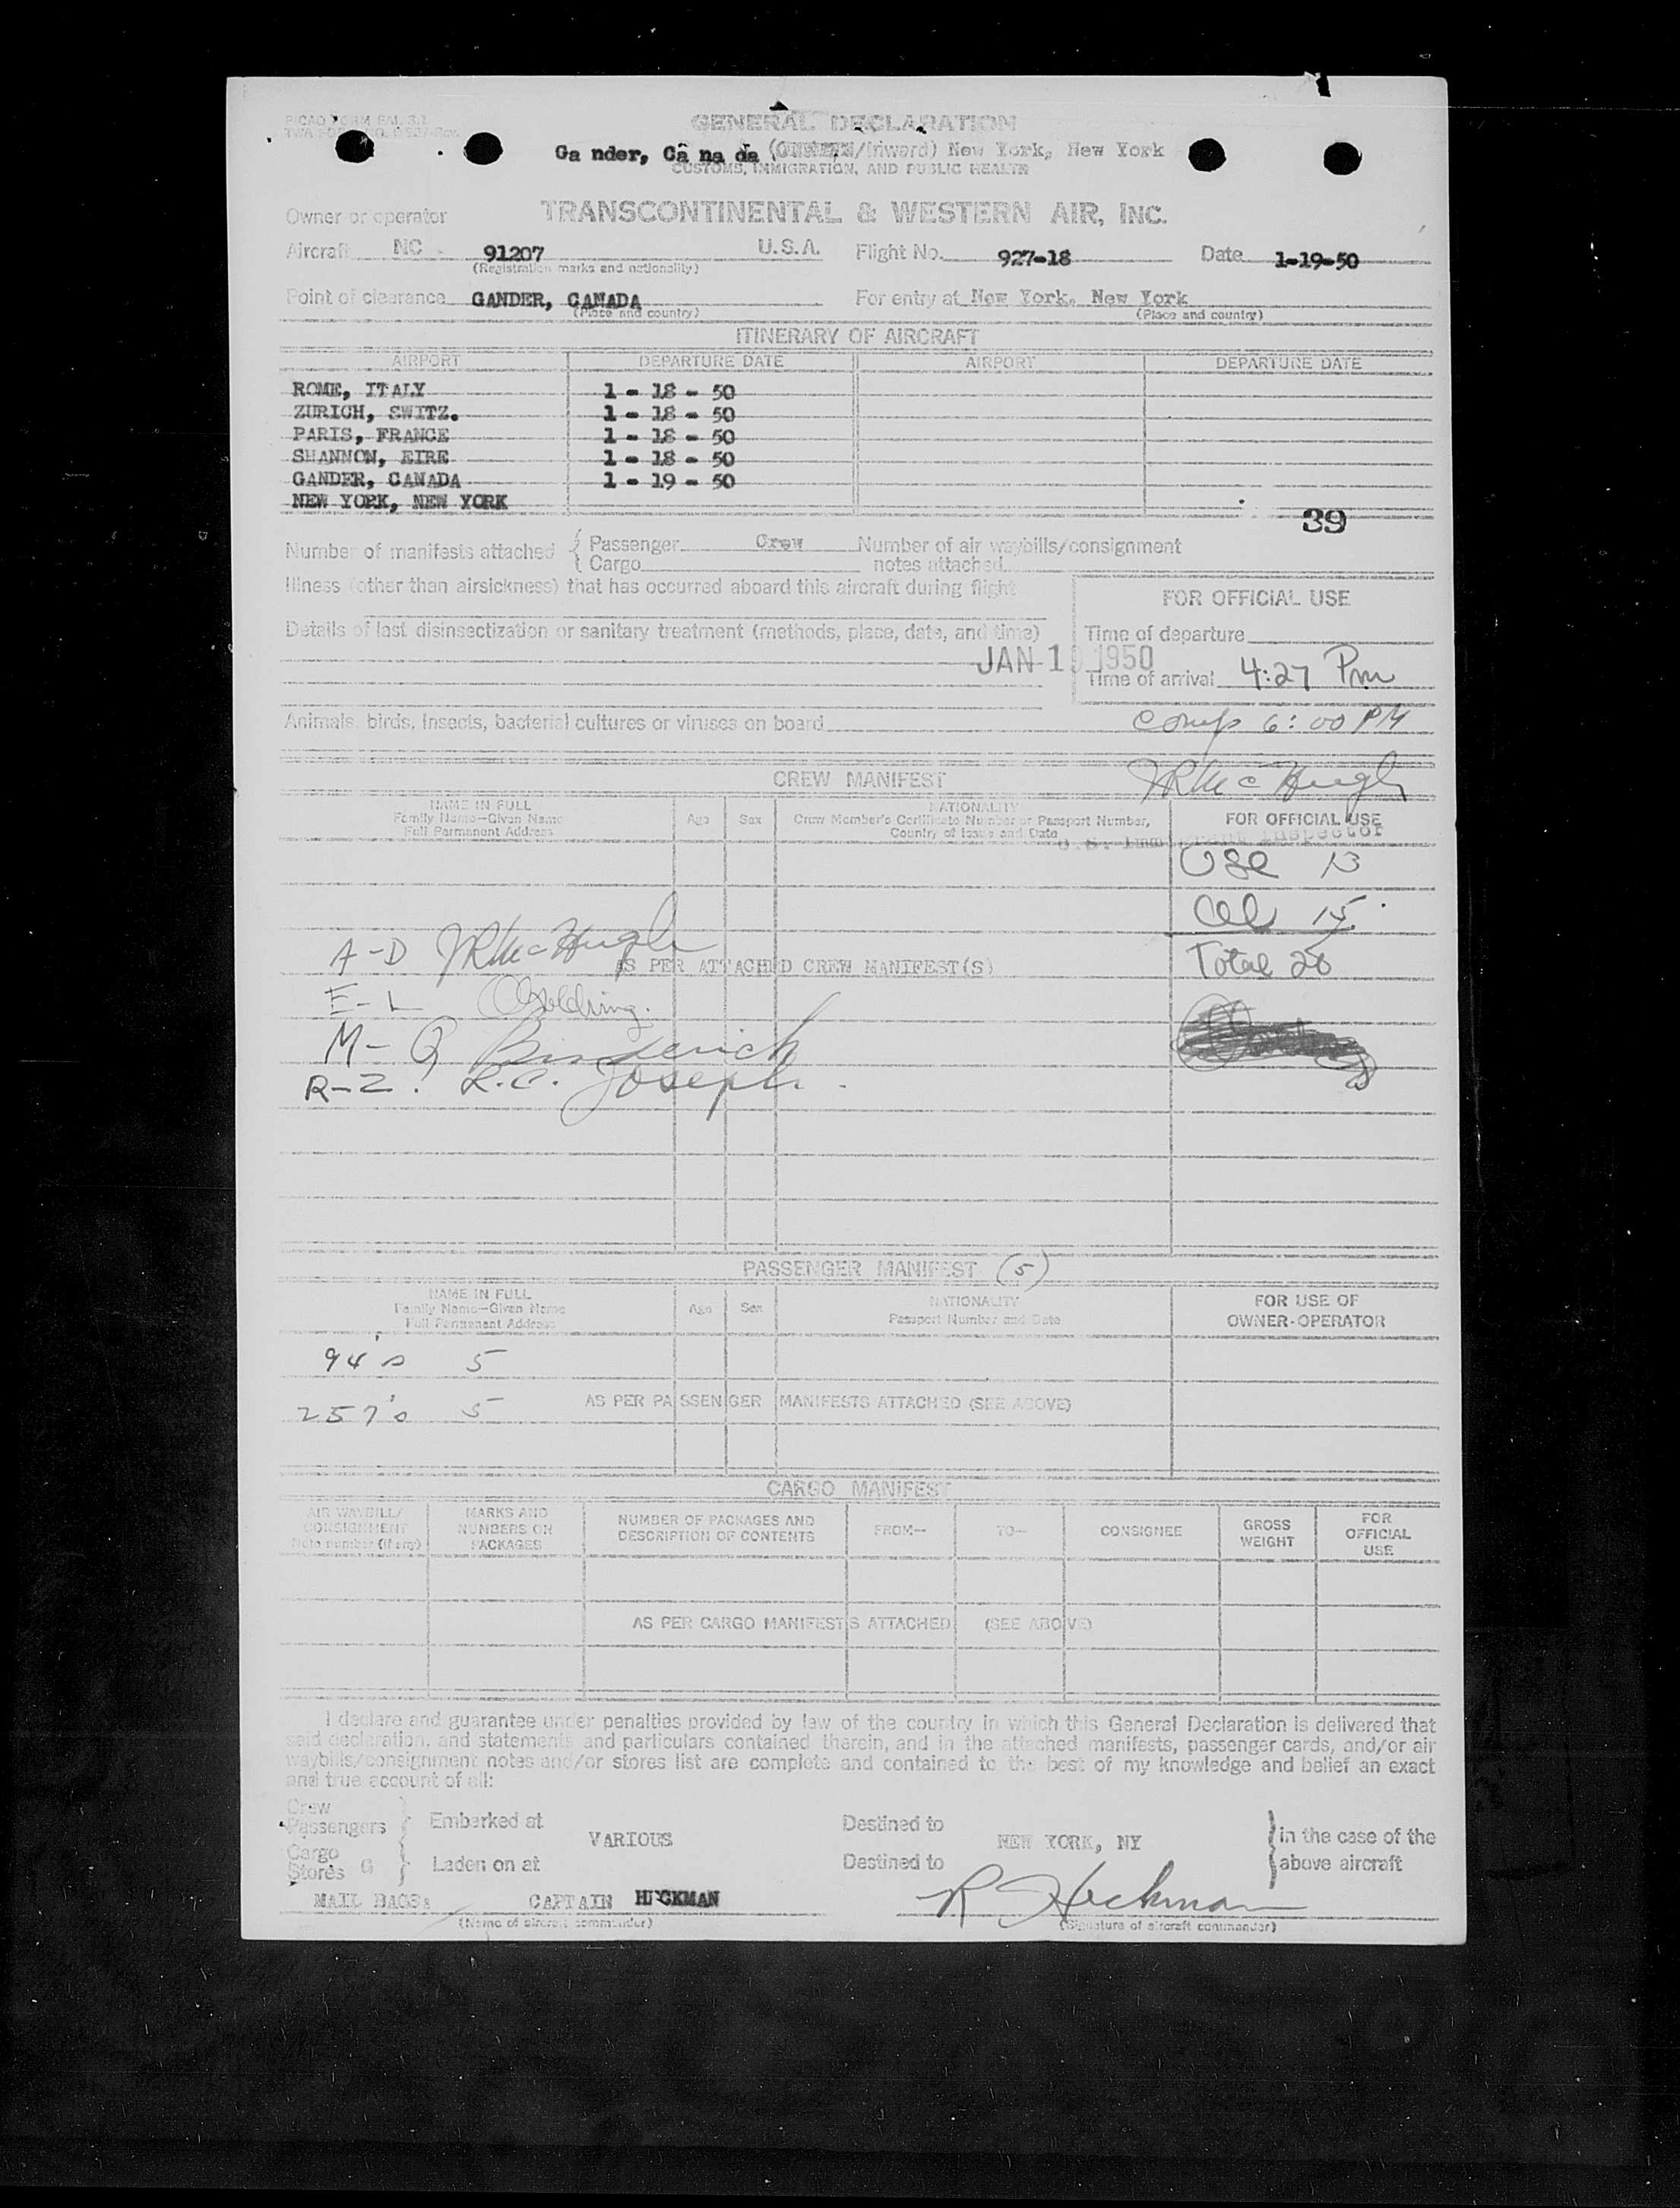 PICAO FORM FAL 3.1
GENERAL DECLARATION
Ga nder, Ca na da (Outward/Inward) New York, New York
CUSTOMS, IMMIGRATION, AND PUBLIC HEALTH
Owner or operator TRANSCONTINENTAL & WESTERN AIR, INC.
Aircraft NC 91207 U.S.A. Flight No. 927-18 Date 1-19-50
(Registration marks and nationality)
Point of clearance GANDER, CANADA For entry at New York, New York
(Place and country) (Place and country)
ITINERARY OF AIRCRAFT
AIRPORT DEPARTURE DATE AIRPORT DEPARTURE DATE
ROME, ITALY 1 - 18 - 50
ZURICH, SWITZ. 1 - 18 - 50
PARIS, FRANCE 1 - 18 - 50
SHANNON, EIRE 1 - 18 - 50
GANDER, CANADA 1 - 19 - 50
NEW YORK, NEW YORK
39
Number of manifests attached { Passenger Crew Number of air waybills/consignment
{ Cargo notes attached
Illness (other than airsickness) that has occurred aboard this aircraft during flight
FOR OFFICIAL USE
Details of last disinsectization or sanitary treatment (methods, place, date, and time)
Time of departure
JAN 19 1950
Time of arrival 4:27 Pm
Animals, birds, insects, bacterial cultures or viruses on board
Comp 6:00 PM
JRMcHugh
CREW MANIFEST
NAME IN FULL
Family Name—Given Name
Full Permanent Address
Age Sex
NATIONALITY
Crew Member's Certificate Number or Passport Number,
Country of Issue and Date
FOR OFFICIAL USE
U.S. Immigrant Inspector
USC 13
Al 15
Total 28
A-D JRMcHugh
AS PER ATTACHED CREW MANIFEST(S)
E-L Golding.
M-Q
R-Z. L.C. Joseph.
PASSENGER MANIFEST (5)
NAME IN FULL
Family Name—Given Name
Full Permanent Address
Age Sex
NATIONALITY
Passport Number and Date
FOR USE OF
OWNER-OPERATOR
94's 5
257's 5
AS PER PASSENGER MANIFESTS ATTACHED (SEE ABOVE)
CARGO MANIFEST
AIR WAYBILL/
CONSIGNMENT
Note number (if any)
MARKS AND
NUMBERS ON
PACKAGES
NUMBER OF PACKAGES AND
DESCRIPTION OF CONTENTS
FROM—
TO—
CONSIGNEE
GROSS
WEIGHT
FOR
OFFICIAL
USE
AS PER CARGO MANIFESTS ATTACHED (SEE ABOVE)
I declare and guarantee under penalties provided by law of the country in which this General Declaration is delivered that
said declaration, and statements and particulars contained therein, and in the attached manifests, passenger cards, and/or air
waybills/consignment notes and/or stores list are complete and contained to the best of my knowledge and belief an exact
and true account of all:
Crew
Passengers } Embarked at
VARIOUS
Cargo
Stores G } Laden on at
Destined to
NEW YORK, NY
Destined to
} in the case of the
above aircraft
MAIL BAGS: CAPTAIN HECKMAN R Heckman
(Name of aircraft commander) (Signature of aircraft commander)